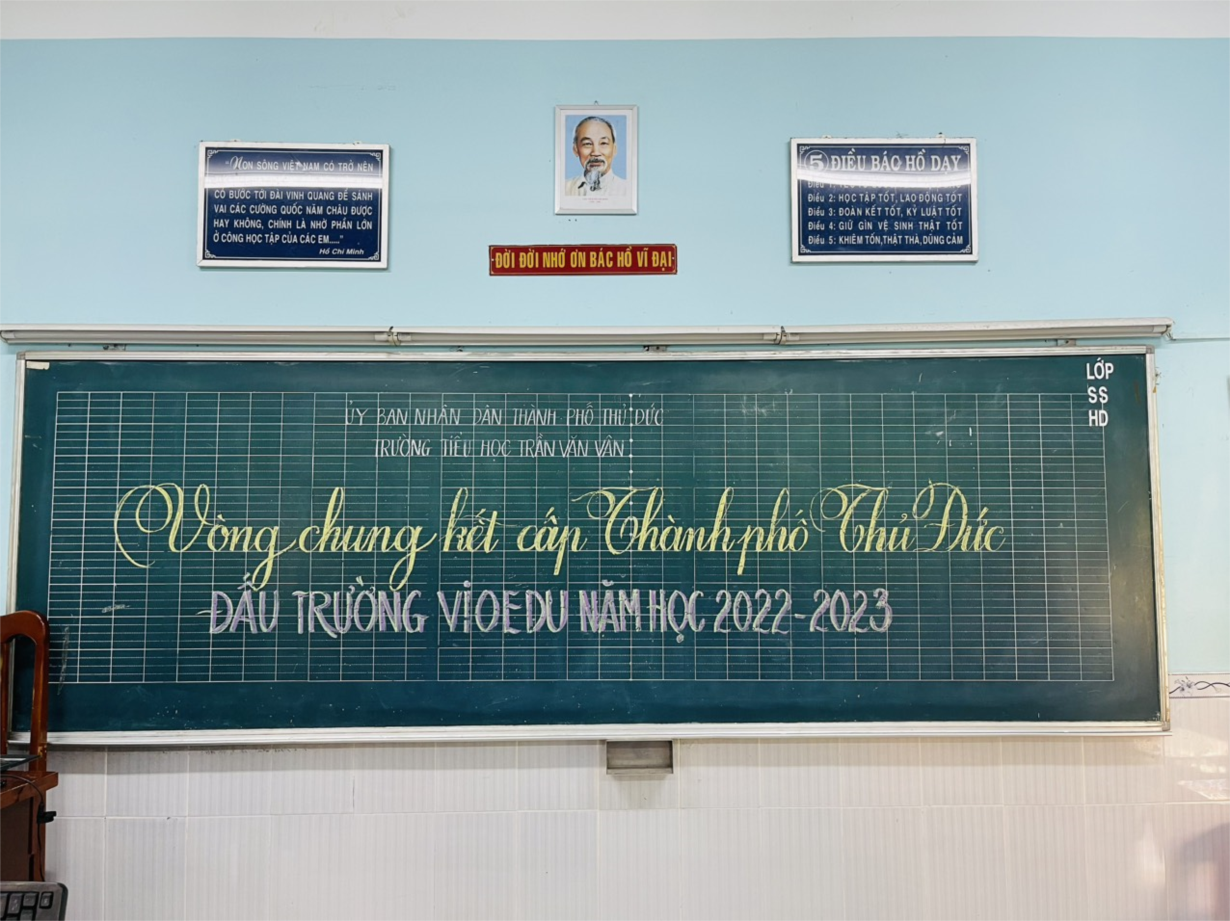 "NON SÔNG VIỆT NAM CÓ TRỞ NÊN
CÓ BƯỚC TỚI ĐÀI VINH QUANG ĐỂ SÁNH
VAI CÁC CƯỜNG QUỐC NĂM CHÂU ĐƯỢC
HAY KHÔNG, CHÍNH LÀ NHỜ PHẦN LỚN
Ở CÔNG HỌC TẬP CỦA CÁC EM....."
Hồ Chí Minh
ĐỜI ĐỜI NHỚ ƠN BÁC HỒ VĨ ĐẠI
5 ĐIỀU BÁC HỒ DẠY
Điều 1:
Điều 2: HỌC TẬP TỐT, LAO ĐỘNG TỐT
Điều 3: ĐOÀN KẾT TỐT, KỶ LUẬT TỐT
Điều 4: GIỮ GÌN VỆ SINH THẬT TỐT
Điều 5: KHIÊM TỐN,THẬT THÀ,DŨNG CẢM
LỚP
SS
HD
ỦY BAN NHÂN DÂN THÀNH PHỐ THỦ ĐỨC
TRƯỜNG TIỂU HỌC TRẦN VĂN VÂN
Vòng chung kết cấp Thành phố Thủ Đức
ĐẤU TRƯỜNG VIOEDU NĂM HỌC 2022-2023